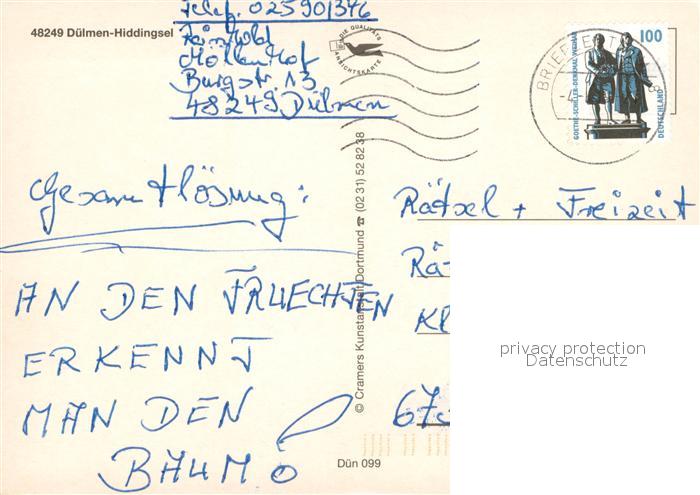 Telef. 02590/346
48249 Dülmen-Hiddingsel
Reinhold
Möllenhof
Burgstr. 13
48249 Dülmen
DIE QUALITÄTS
ANSICHTSKARTE
BRIEFZENTRUM
100
GOETHE-SCHILLER-DENKMAL WEIMAR
DEUTSCHLAND
Gesamtlösung:
AN DEN FRUECHTEN
ERKENNT
MAN DEN
BAUM
© Cramers Kunstanstalt Dortmund ☎ (02 31) 52 82 38
Rätsel + Freizeit
Rät
Kl
67
Dün 099
privacy protection
Datenschutz